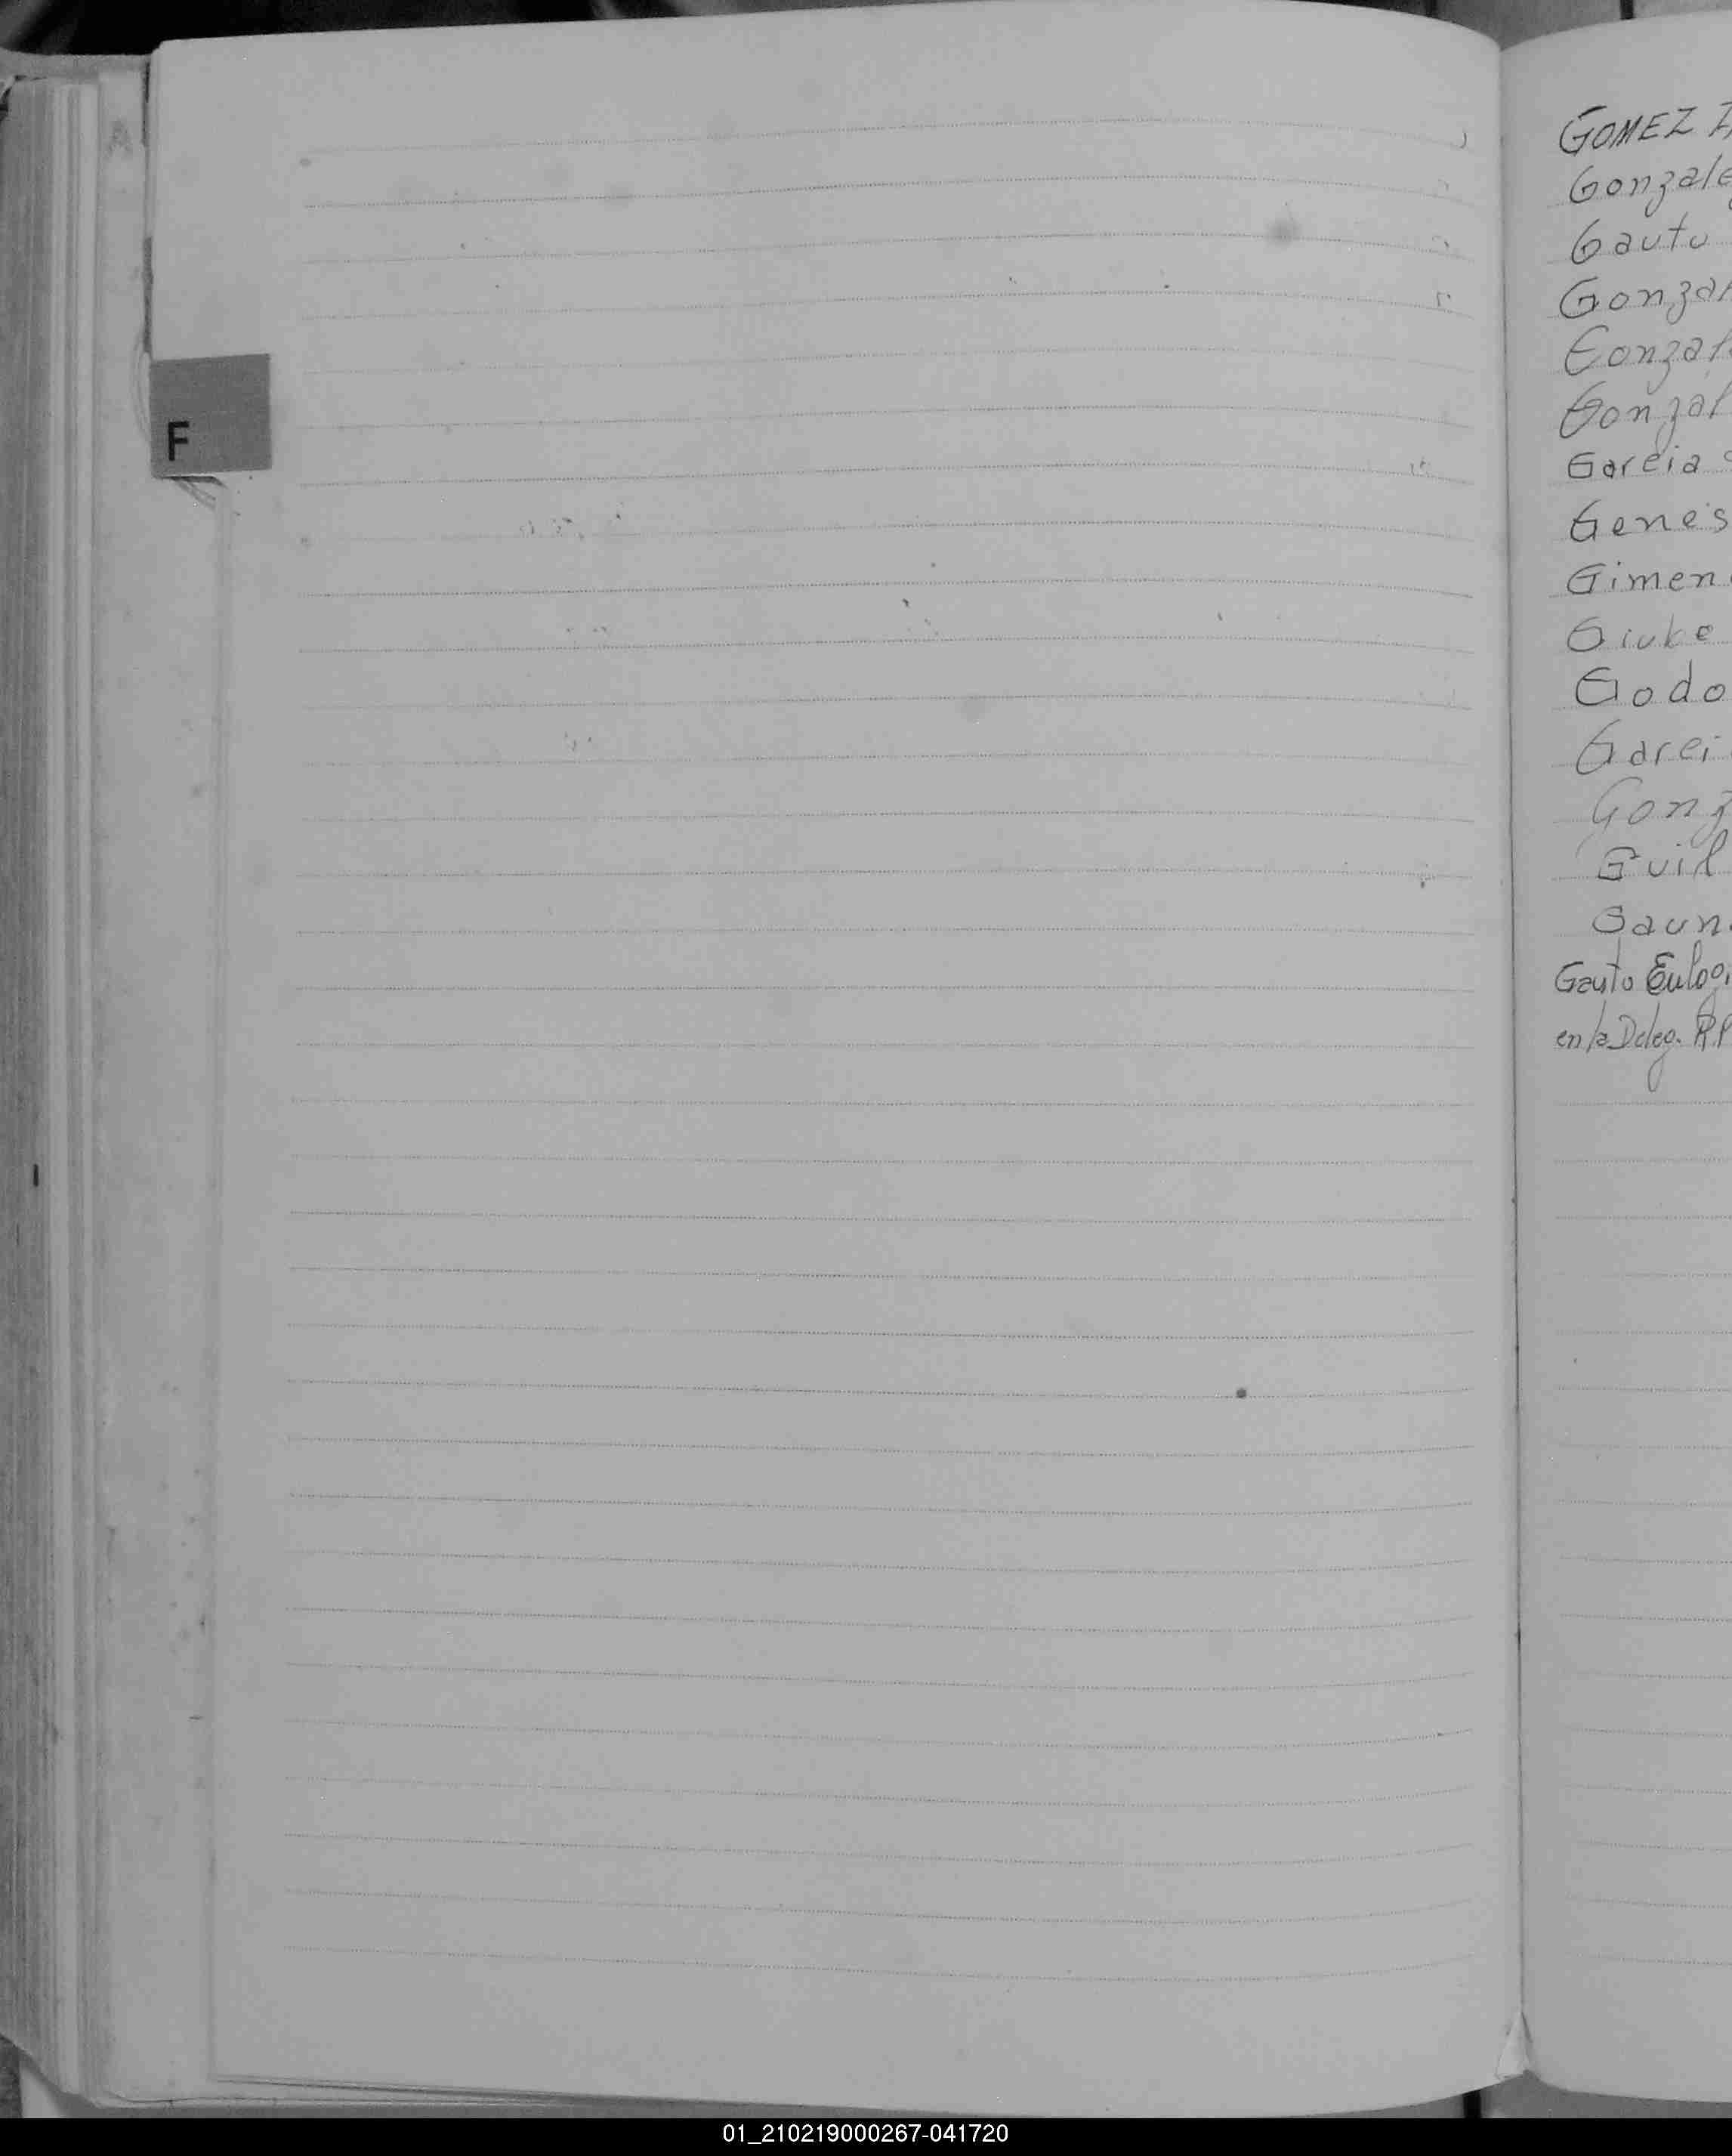 F
GOMEZ
Gonzale
Gauto
Gonzal
Gonzal
Gonzal
Gareia
Genes
Gimen
Godo
Garei
Gonz
Guil
Gaun
Gauto Eulogi
en la Deleg. R.P
01_210219000267-041720